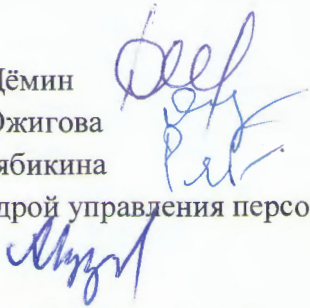 Дёмин
Ожигова
ябикина
дрой управления персо